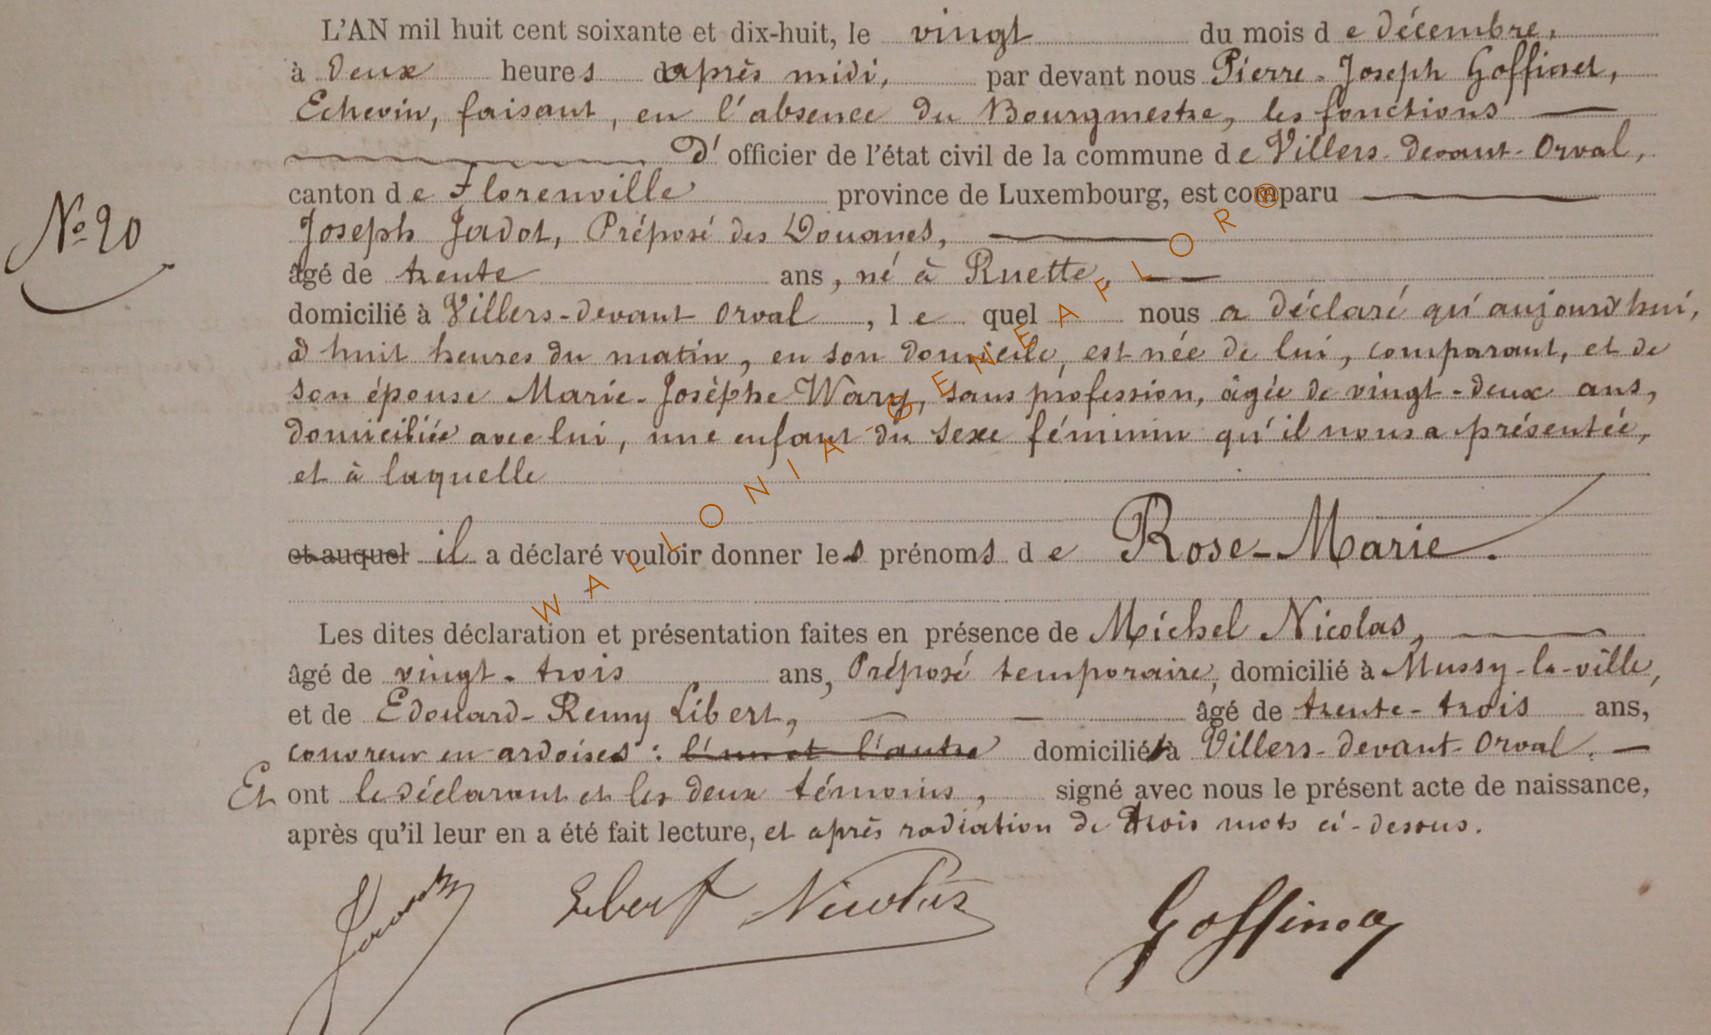 L'AN mil huit cent soixante et dix-huit, le vingt du mois de décembre,
à deux heures après midi, par devant nous Pierre-Joseph Goffinet,
Echevin, faisant, en l'absence du Bourgmestre, les fonctions
d'officier de l'état civil de la commune de Villers-devant-Orval,
canton de Florenville province de Luxembourg, est comparu
N° 20
Joseph Jadot, Préposé des Douanes,
âgé de trente ans, né à Ruette,
domicilié à Villers-devant Orval, lequel nous a déclaré qu'aujourd'hui,
à huit heures du matin, en son domicile, est née de lui, comparant, et de
son épouse Marie-Josèphe Wary, sans profession, âgée de vingt-deux ans,
domiciliée avec lui, une enfant du sexe féminin qu'il nous a présentée,
et à laquelle
et auquel il a déclaré vouloir donner les prénoms de Rose-Marie.
Les dites déclaration et présentation faites en présence de Michel Nicolas,
âgé de vingt-trois ans, Préposé temporaire, domicilié à Mussy-la-ville,
et de Edouard-Remy Libert, âgé de trente-trois ans,
couvreur en ardoises : l'un et l'autre domicilié à Villers-devant-Orval.
Et ont le déclarant et les deux témoins, signé avec nous le présent acte de naissance,
après qu'il leur en a été fait lecture, et après radiation de trois mots ci-dessus.
Libert Nicolas Goffinet
WALLONIA-GENEAFLOR®